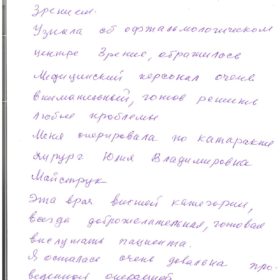 Зрением.
Узнала об офтальмологическом
центре Зрение, обратилась
Медицинский персонал очень
внимательный, готов решить
любые проблемы
Меня оперировала по катаракте
хирург Юлия Владимировна
Майструк
Эта врач высшей категории,
всегда доброжелательная, готовая
выслушать пациента.
Я осталась очень довольна про-
веденной операцией